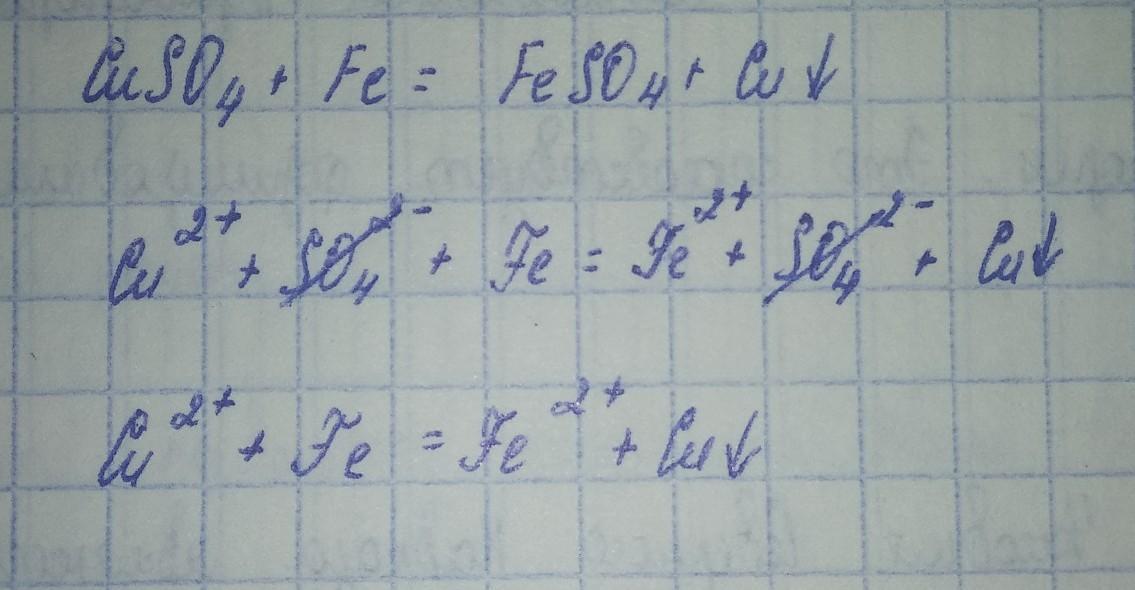 CuSO₄ + Fe = FeSO₄ + Cu↓
Cu²⁺ + SO₄²⁻ + Fe = Fe²⁺ + SO₄²⁻ + Cu↓
Cu²⁺ + Fe = Fe²⁺ + Cu↓